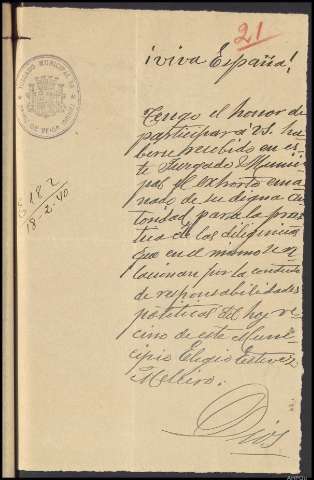 21
¡Viva España!
JUZGADO MUNICIPAL DE
182
18-2-40
Tengo el honor de
participar a VS. ha
berse recibido en es
te Juzgado Munici
pal el exhorto ema
nado de su digna au
toridad, para la prac
tica de las diligencias
que en el mismo se re
lacionan por la conducta
de responsabilidades
politicas del hoy ve
cino de este Muni
cipio Eligio Estevez
Meleiro.
Dios